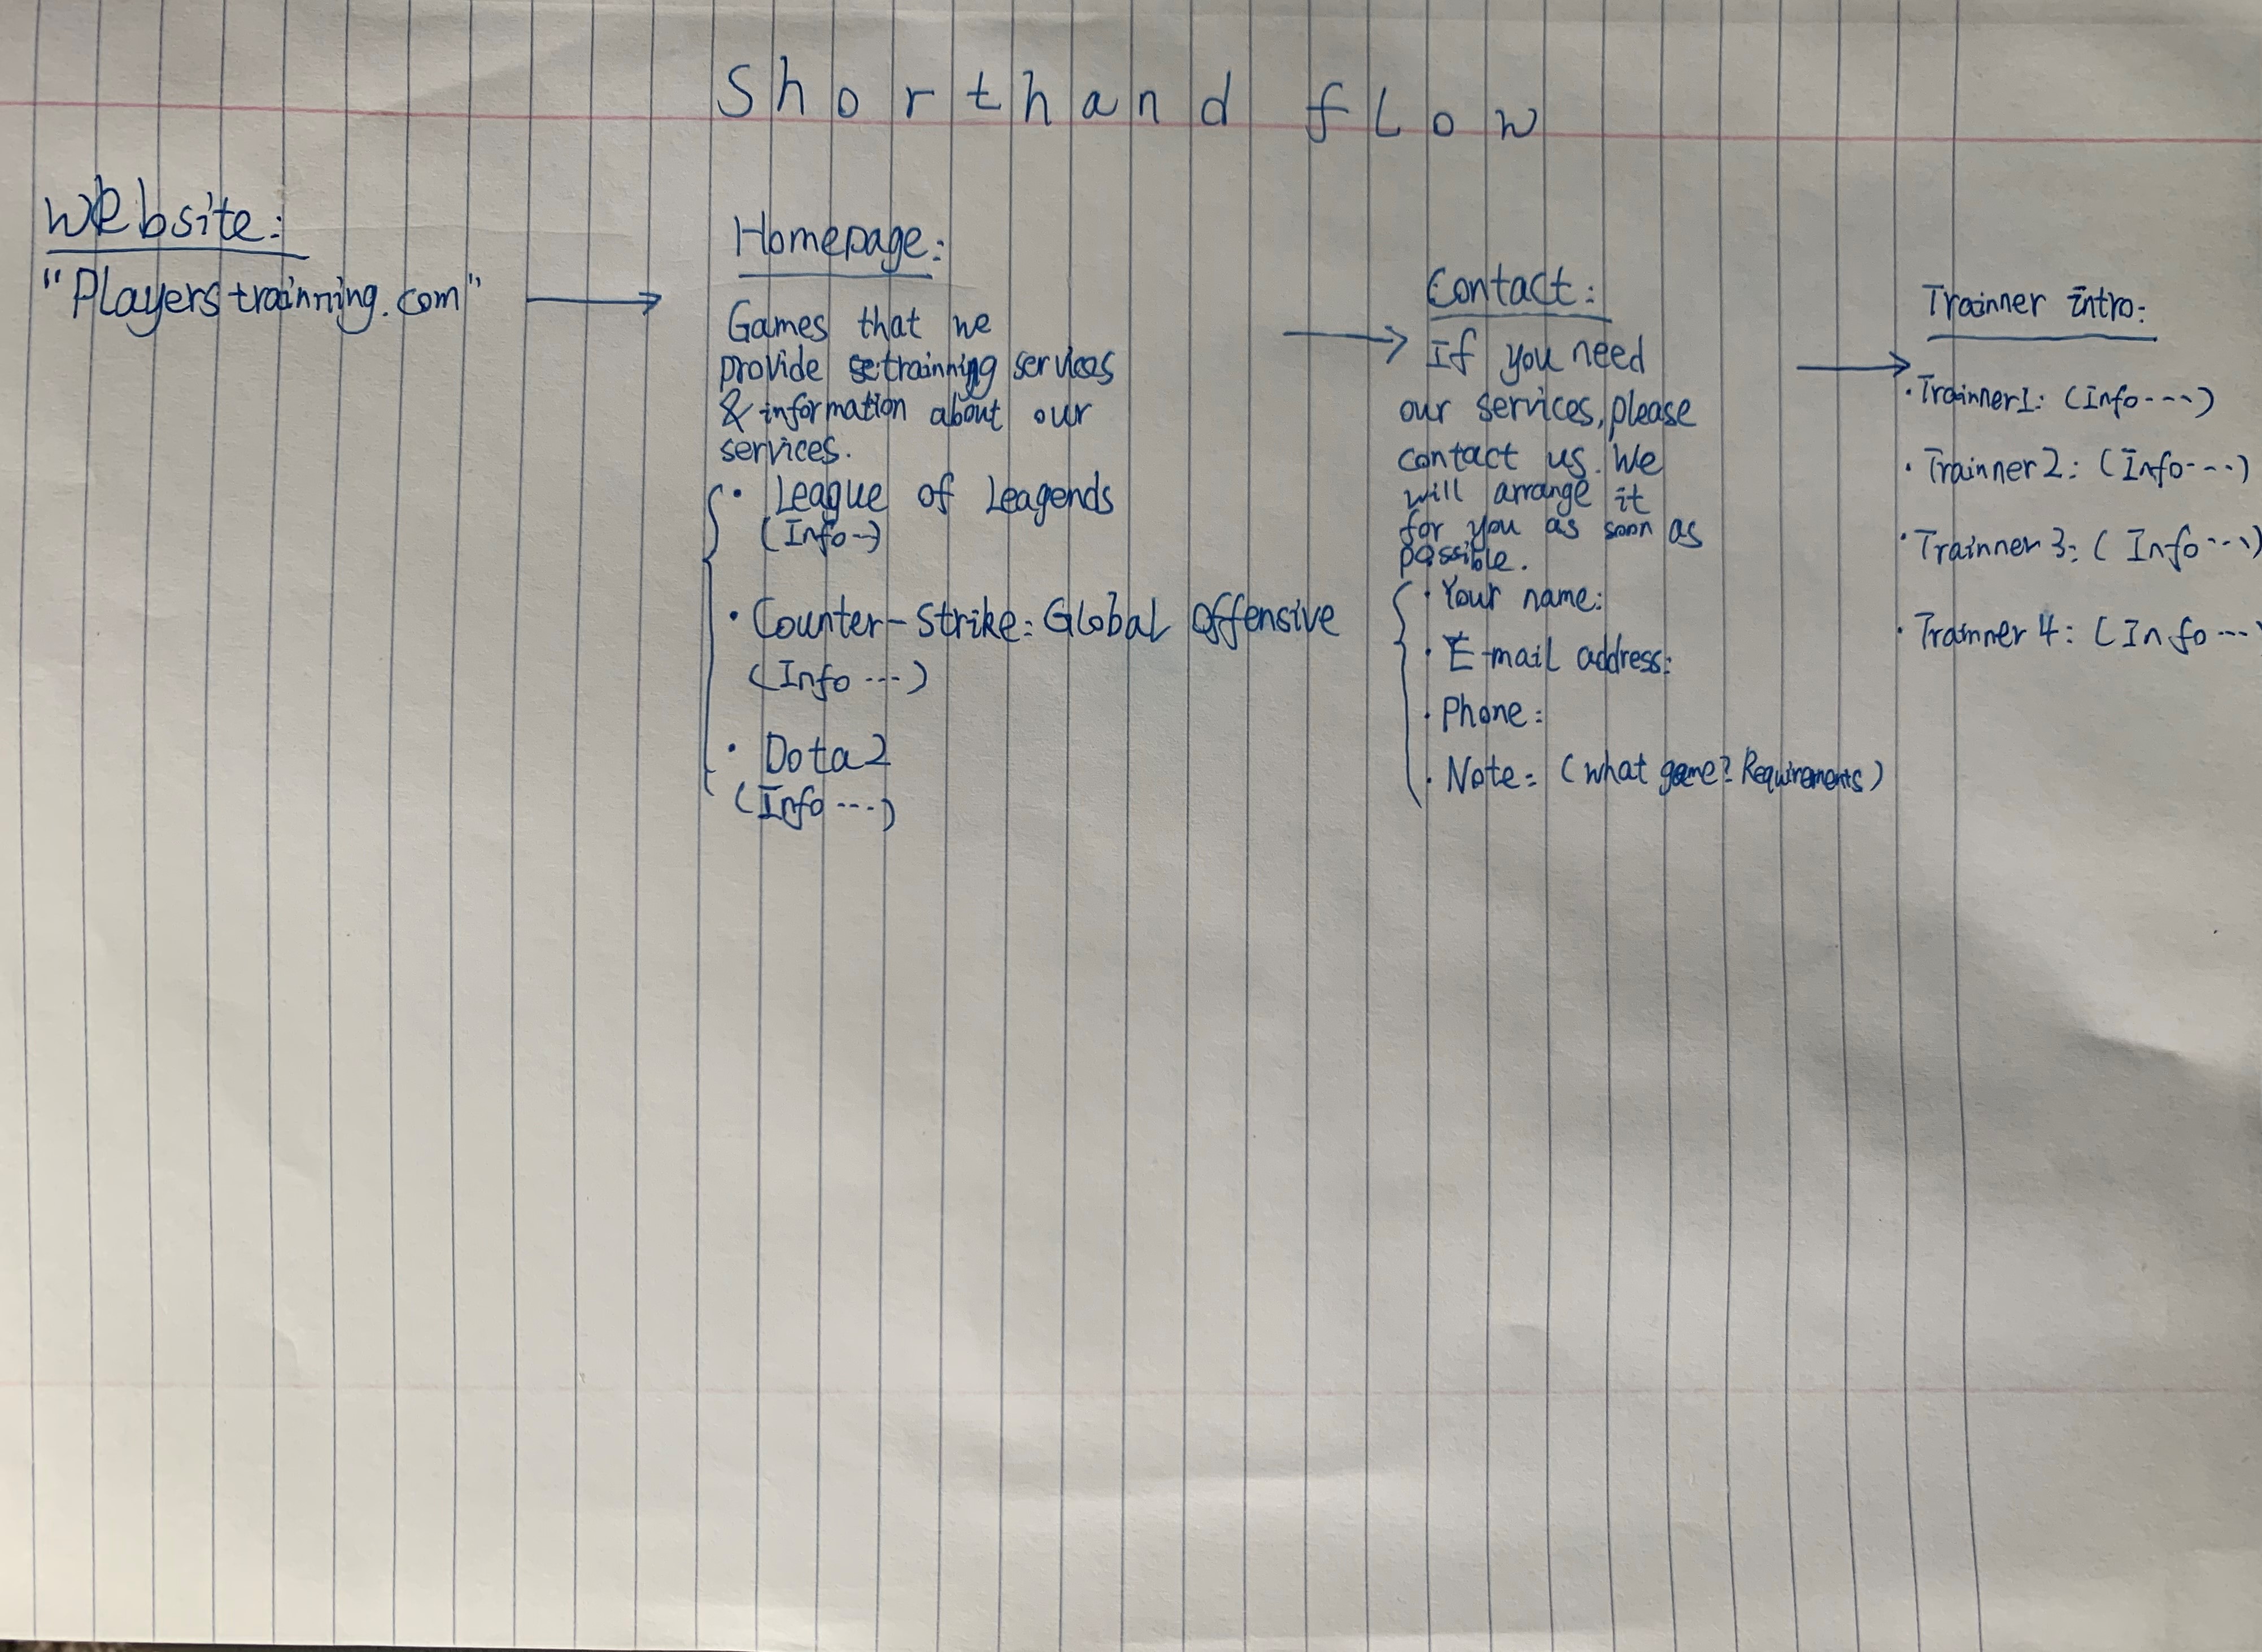 Shorthand flow
Website:
"Playerstrainning.com"
Homepage:
Games that we
provide setrainning services
& information about our
services.
· League of Leagends
(Info--)
· Counter-Strike: Global Offensive
(Info ---)
· Dota2
(Info ---)
Contact:
If you need
our services, please
contact us. We
will arrange it
for you as soon as
possible.
· Your name:
· E-mail address:
· Phone:
· Note: (what game? Requirements)
Trainner intro:
· Trainner1: (Info---)
· Trainner2: (Info---)
· Trainner3: (Info---)
· Trainner4: (Info---